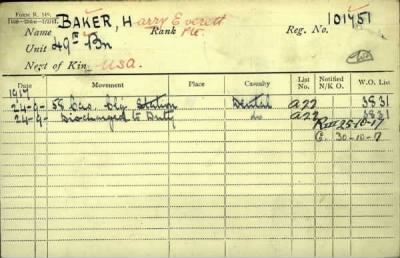 FORM R. 149.
Name BAKER, H arry Everett Rank Pte. Reg. No. 101751
Unit 49th Bn
Next of Kin USA.
Date Movement Place Casualty List No. Notified N/K O. W.O. List
1917
24-9- 58 Cas. Clg Station Dental A22 3831
24-9- Discharged to Duty do A22 3831
25-10-17
C. 30-10-7